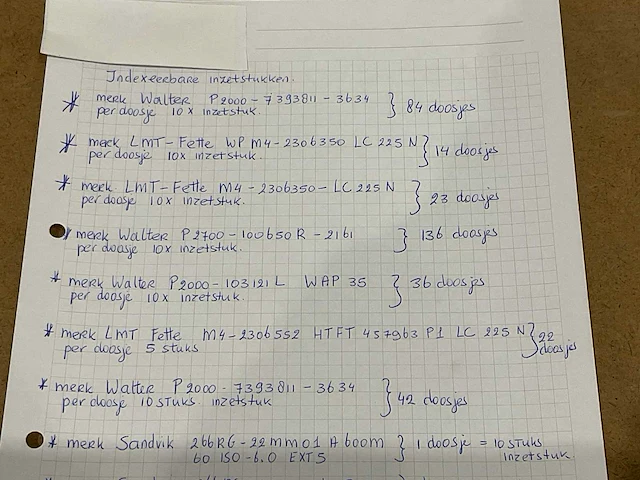 Indexeerbare inzetstukken.
* merk Walter P2000-7393811-3634 } 84 doosjes
per doosje 10x inzetstuk.
* merk LMT-Fette WP M4-2306350 LC 225 N } 14 doosjes
per doosje 10x inzetstuk.
* merk LMT-Fette M4-2306350-LC225N } 23 doosjes
per doosje 10x inzetstuk.
* merk Walter P2700-100650R-2161 } 136 doosjes
per doosje 10x inzetstuk.
* merk Walter P2000-103121L WAP 35 } 36 doosjes
per doosje 10x inzetstuk.
* merk LMT Fette M4-2306552 HTFT 457963 P1 LC 225 N } 22 doosjes
per doosje 5 stuks
* merk Walter P2000-7393811-3634 } 42 doosjes
per doosje 10 stuks inzetstuk
* merk Sandvik 266RG-22mm01A600m } 1 doosje = 10 stuks
60 ISO-6.0 EXT.5 inzetstuk.